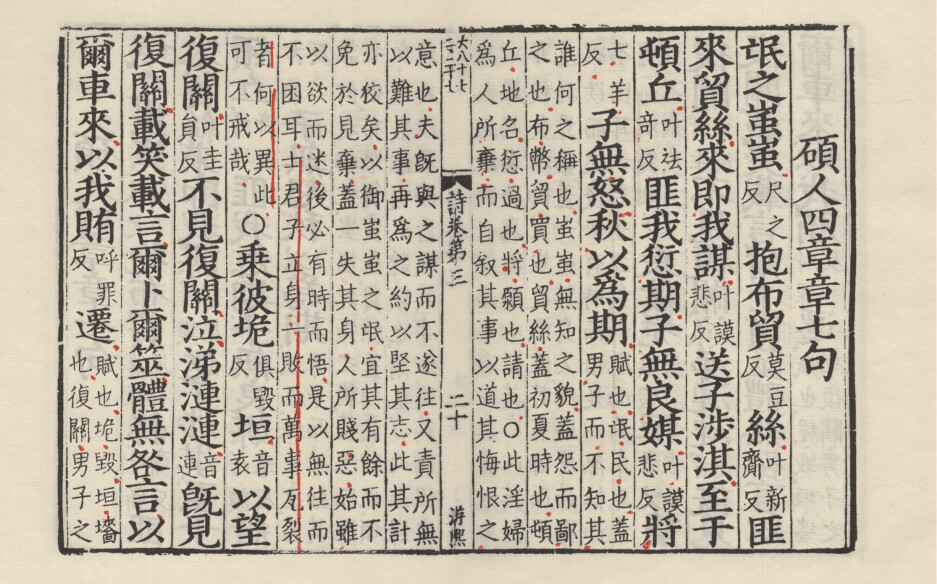 碩人四章章七句
氓之蚩蚩尺之反抱布貿莫豆反絲叶新齎反匪
來貿絲來即我謀叶謨悲反送子涉淇至于
頓丘叶袪奇反匪我愆期子無良媒叶謨悲反將
七羊反子無怒秋以為期賦也氓民也蓋男子而不知其
誰何之稱也蚩蚩無知之貌蓋怨而鄙
之也布幣貿買也貿絲蓋初夏時也頓
丘地名愆過也將願也請也○此淫婦
為人所棄而自叙其事以道其悔恨之
詩卷第三 二十 游熙
意也夫旣與之謀而不遂往又責所無
以難其事再為之約以堅其志此其計
亦狡矣以御蚩蚩之氓宜其有餘而不
免於見棄蓋一失其身人所賤惡始雖
以欲而迷後必有時而悟是以無往而
不困耳士君子立身一敗而萬事瓦裂
者何以異此可不戒哉○乘彼垝俱毀反垣音袁以望
復關叶圭員反不見復關泣涕漣漣音連旣見
復關載笑載言爾卜爾筮體無咎言以
爾車來以我賄呼罪反遷賦也垝毀垣墻也復關男子之